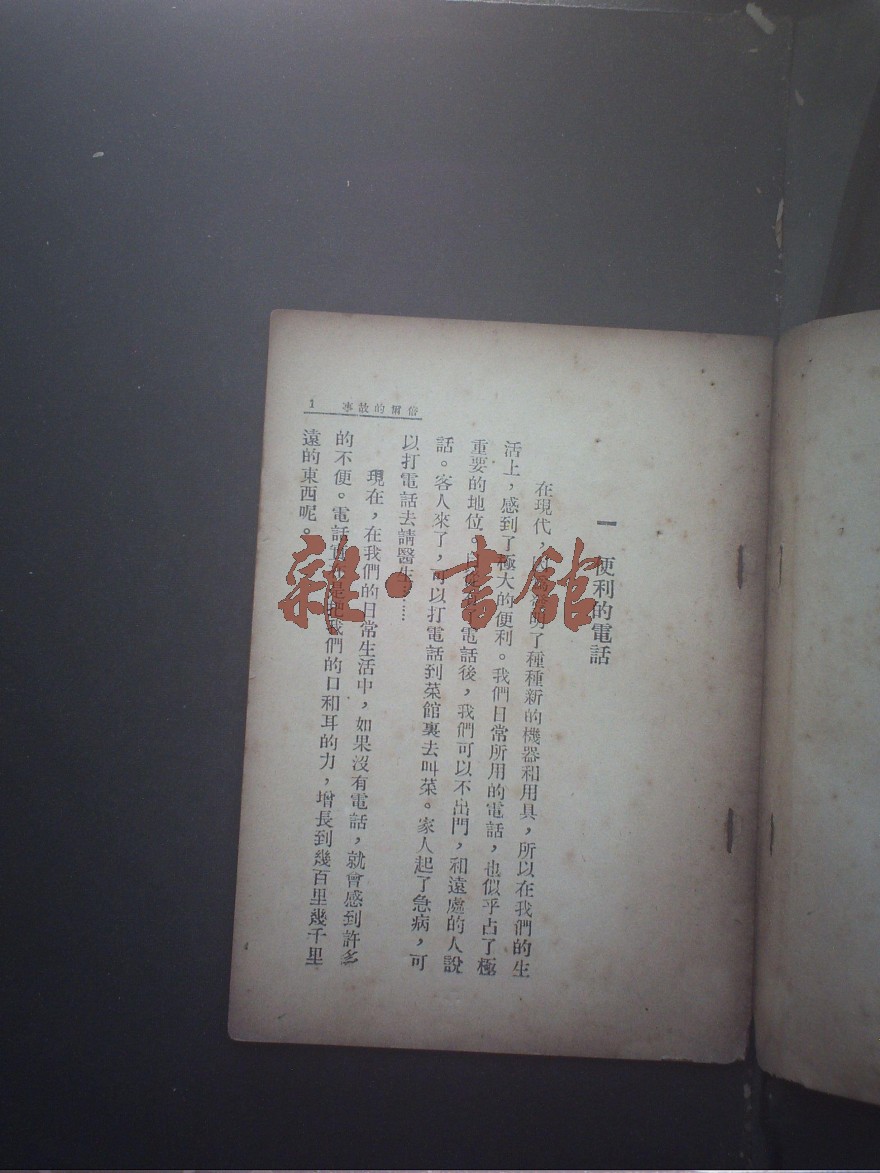 一　便利的電話
在現代，明了種種新的機器和用具，所以在我們的生
活上，感到了極大的便利。我們日常所用的電話，也似乎占了極
重要的地位。電話後，我們可以不出門，和遠處的人說
話。客人來了，可以打電話到菜館裏去叫菜。家人起了急病，可
以打電話去請醫生……
現在，在我們的日常生活中，如果沒有電話，就會感到許多
的不便。電話實是把我們的口和耳的力，增長到幾百里幾千里
遠的東西呢。
俗慣的故事 1
雜·書館